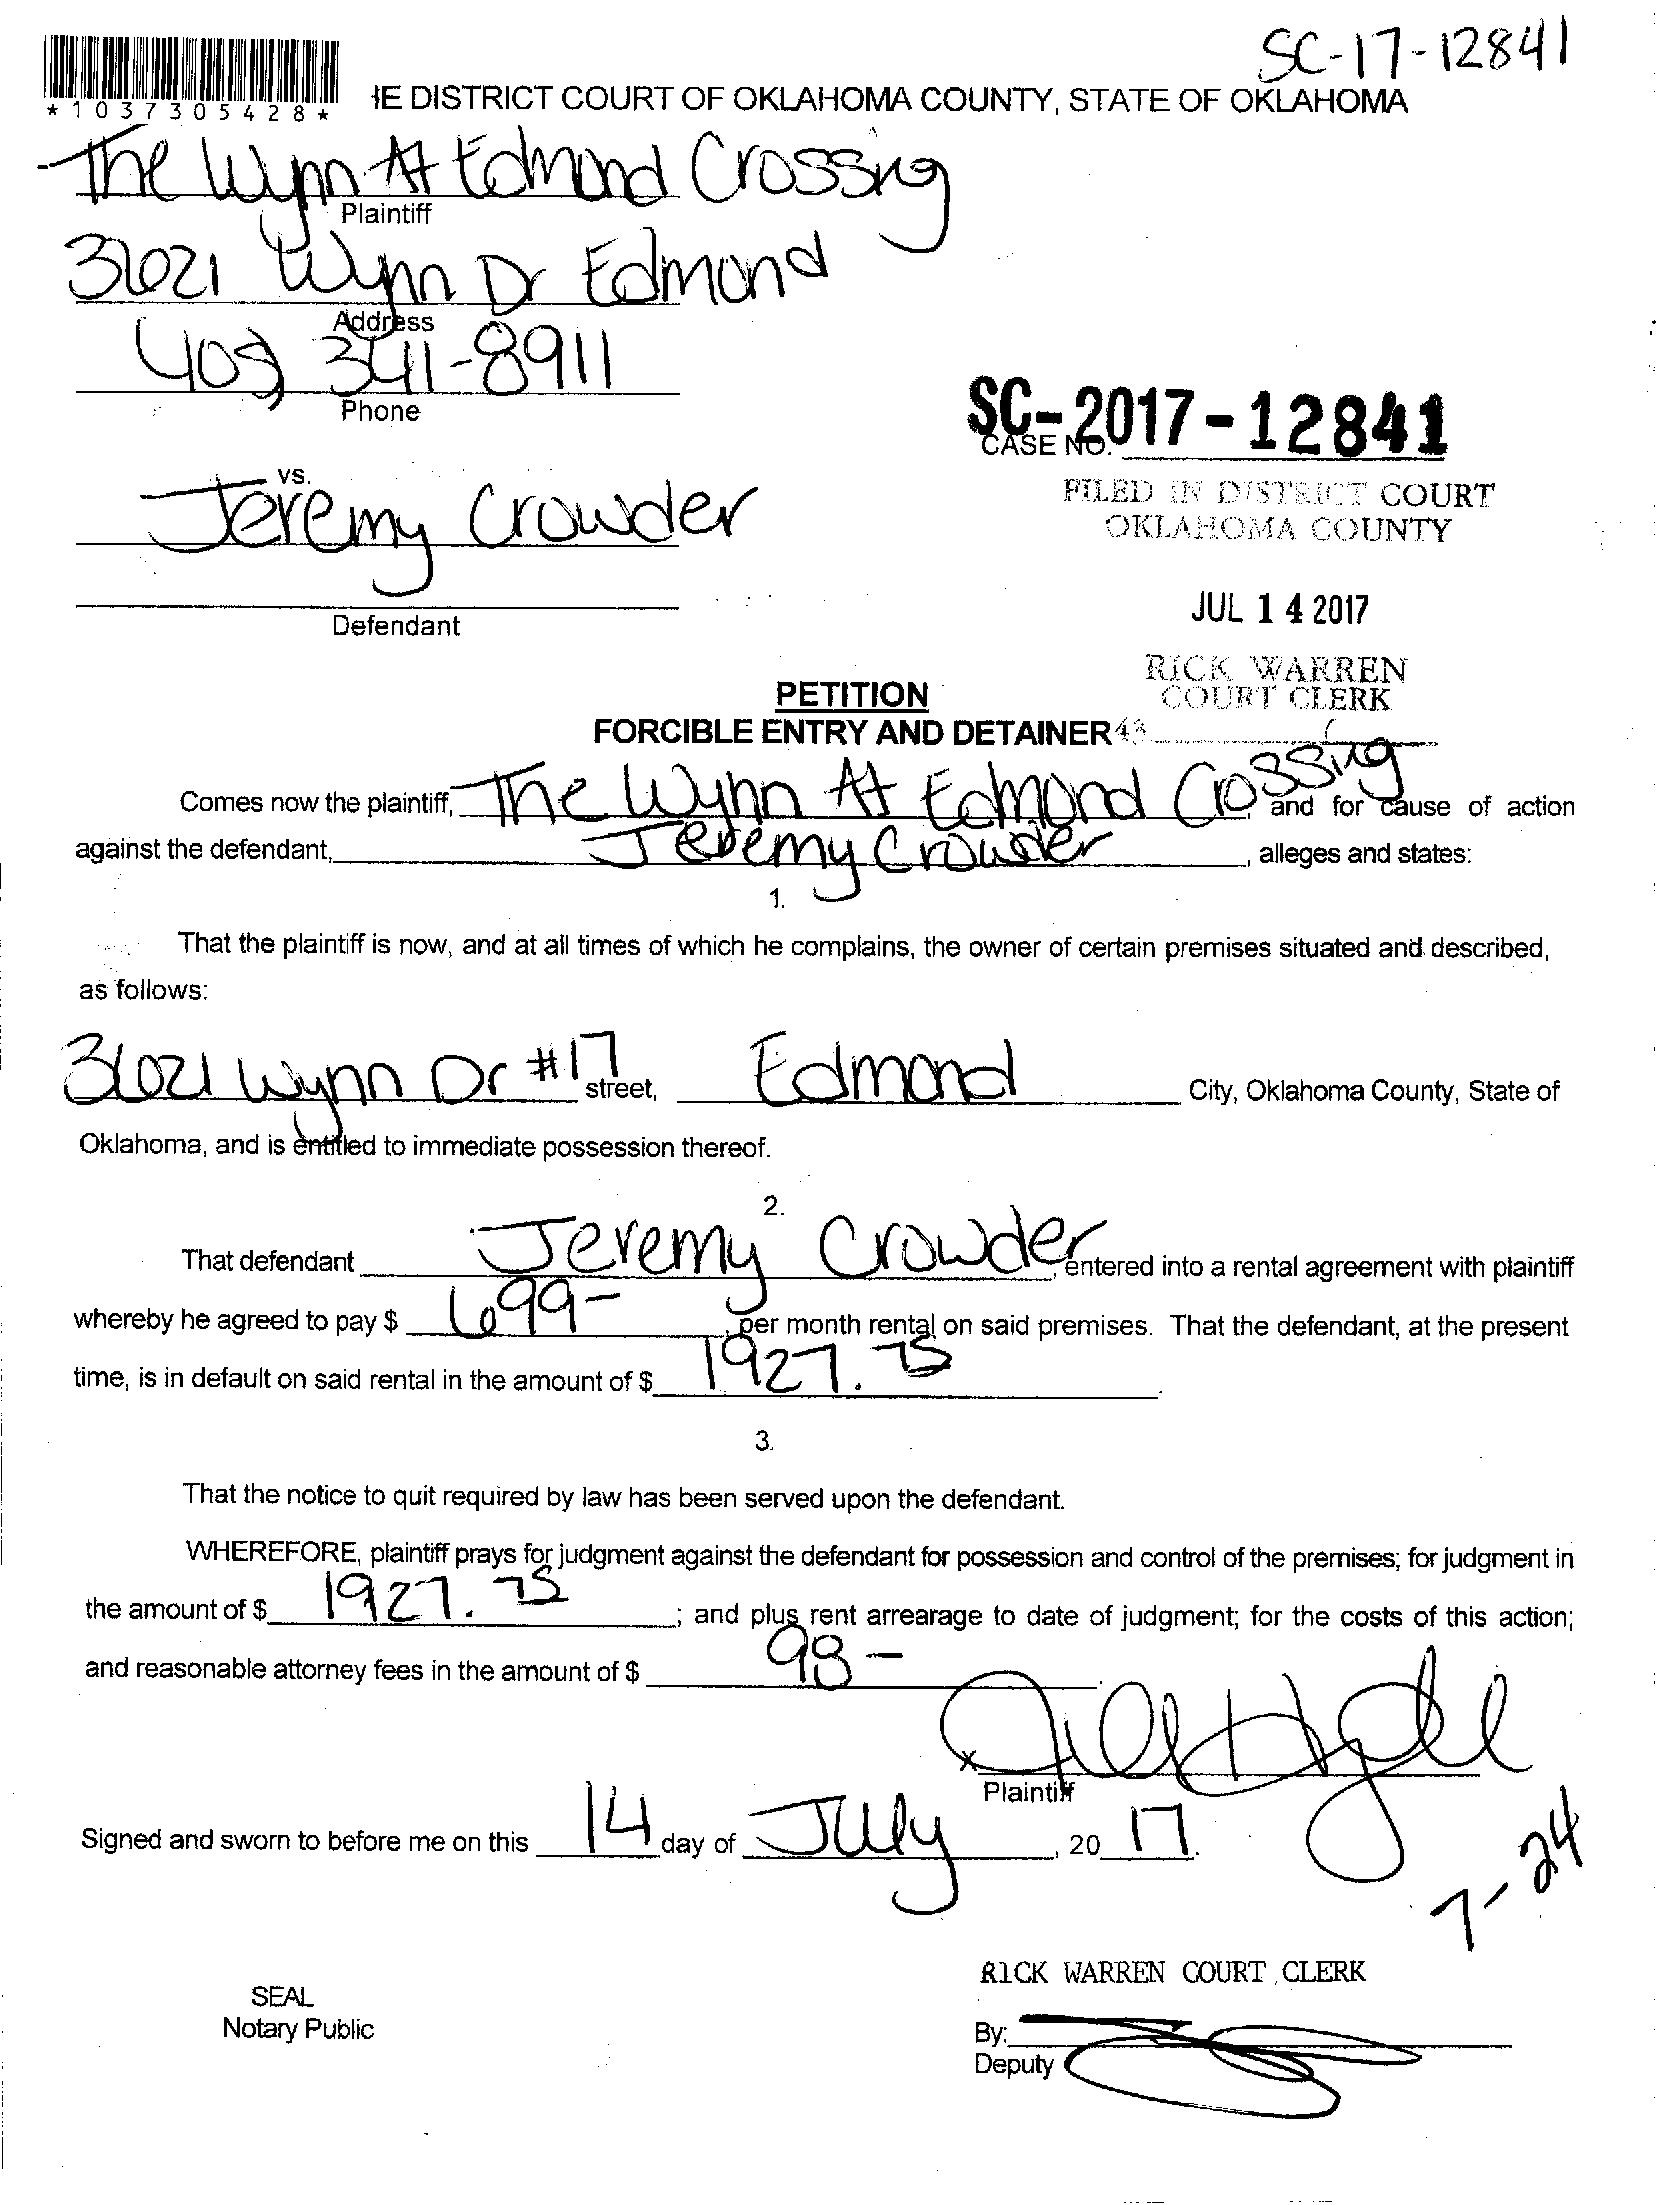 SC-17-12841
*1037305428*
IE DISTRICT COURT OF OKLAHOMA COUNTY, STATE OF OKLAHOMA
The Wynn At Edmond Crossing
Plaintiff
3621 Wynn Dr Edmond
Address
405) 341-8911
Phone
SC-2017-12841
CASE NO.
vs.
Jeremy Crowder
FILED IN DISTRICT COURT
OKLAHOMA COUNTY
JUL 14 2017
Defendant
RICK WARREN
COURT CLERK
PETITION
FORCIBLE ENTRY AND DETAINER
43
Comes now the plaintiff, The Wynn At Edmond Crossing, and for cause of action
against the defendant, Jeremy Crowder, alleges and states:
1.
That the plaintiff is now, and at all times of which he complains, the owner of certain premises situated and described,
as follows:
3621 Wynn Dr #17 street, Edmond City, Oklahoma County, State of
Oklahoma, and is entitled to immediate possession thereof.
2.
That defendant Jeremy Crowder, entered into a rental agreement with plaintiff
whereby he agreed to pay $ 699-, per month rental on said premises. That the defendant, at the present
time, is in default on said rental in the amount of $ 1927.75.
3.
That the notice to quit required by law has been served upon the defendant.
WHEREFORE, plaintiff prays for judgment against the defendant for possession and control of the premises; for judgment in
the amount of $ 1927.75; and plus rent arrearage to date of judgment; for the costs of this action;
and reasonable attorney fees in the amount of $ 98-.
x
Plaintiff
Signed and sworn to before me on this 14 day of July, 20 17.
7-24
RICK WARREN COURT CLERK
SEAL
Notary Public
By:
Deputy